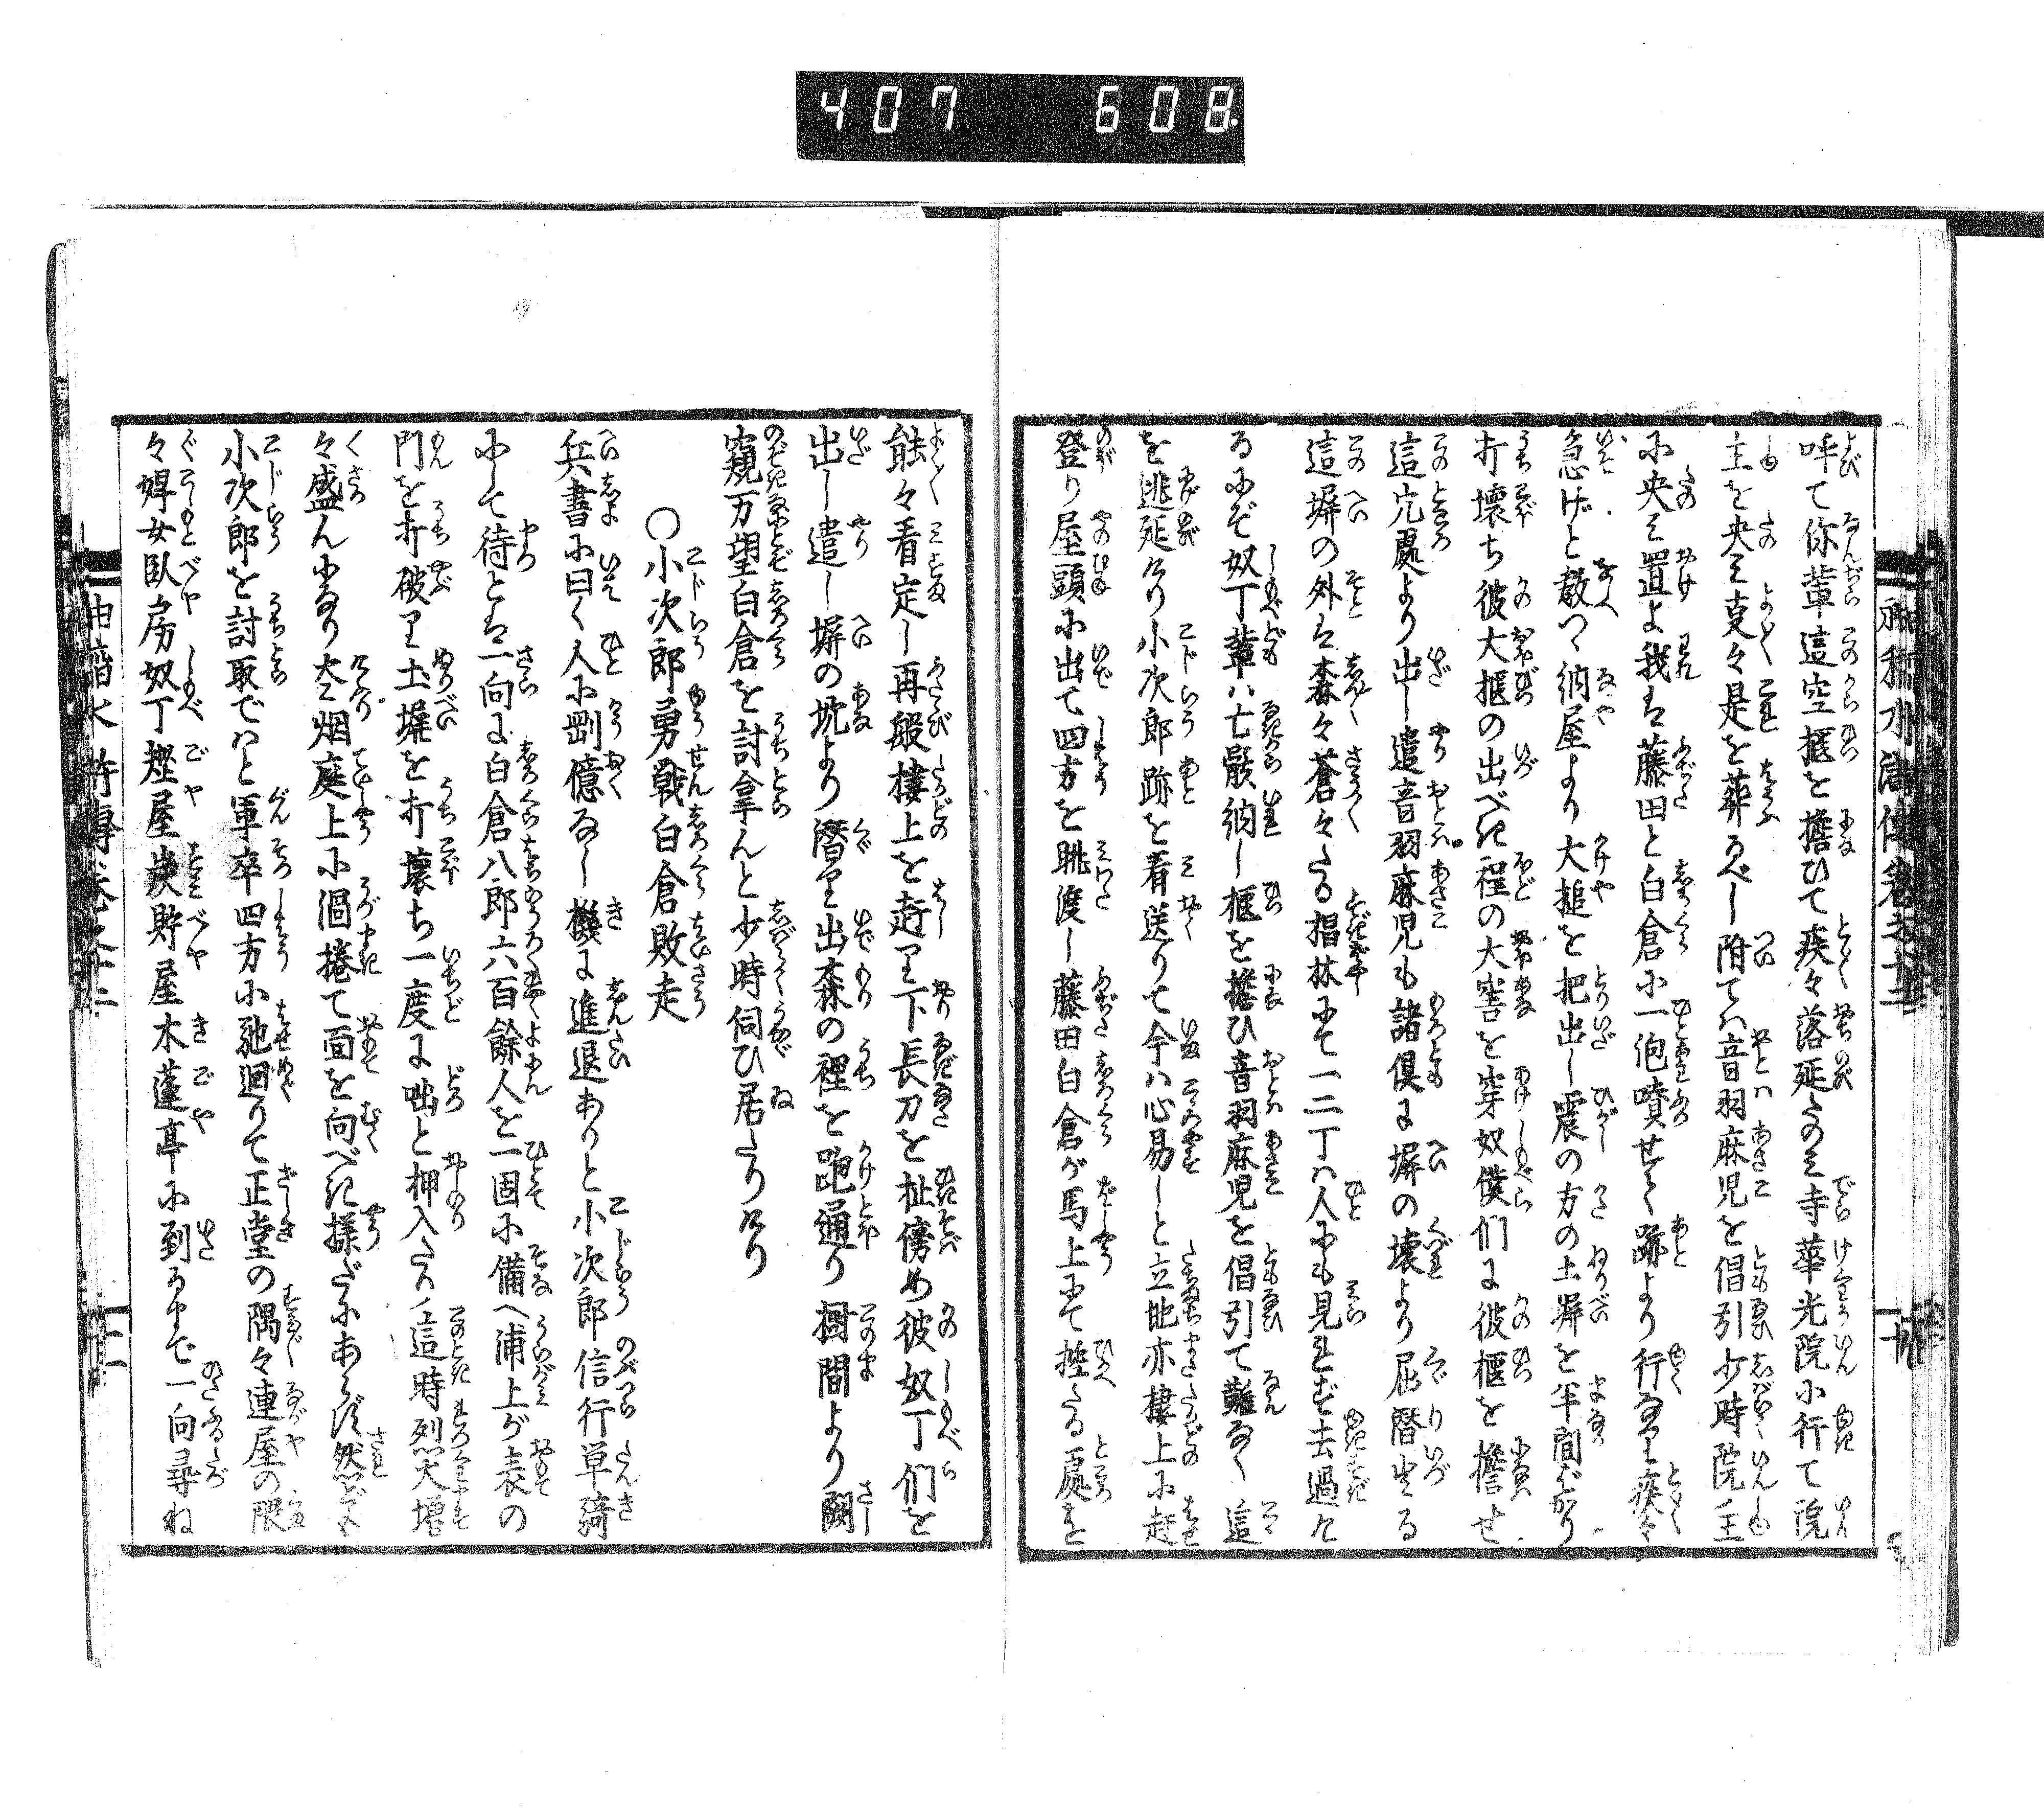 407 608
呼て你輩這空柩を擔ひて疾々落延よのミ寺華光院に行て院
主を央ミ克々是を葬るべし附てハ音羽麻児を倡引少時院主
に央ミ置よ我は藤田と白倉に一泡噴せて跡より行なり疾々
急げと教へ納屋より大搥を把出し震の方の土塀を半間ばかり
打壊ち彼大柩の出べき程の大窖を穿奴僕们に彼柩を擔せ
這穴處より出し遣音羽麻児も諸倶に塀の壊より屈潜出る
這塀の外は森々蒼々たる椙林にて一二丁ハ人にも見えず去過
るにぞ奴丁輩ハ七骸納し柩を擔ひ音羽麻児を倡引て難なく這
を逃延けり小次郎跡を看送りて今ハ心易しと立地亦樓上に赶
登り屋頭に出て四方を眺渡し藤田白倉が馬上にて控たる處を
能々看定し再般樓上を赶り下長刀を扯傍め彼奴丁们を
出し遣し塀の坑より潜り出森の裡を跑通り樹間より闚
窺万望白倉を討拿んと少時伺ひ居たりけり
〇小次郎勇戦白倉敗走
兵書に曰く人に剛億なし機に進退ありと小次郎信行単騎
にして待とは一向に白倉八郎六百餘人を一固に備へ浦上が表の
門を打破り土塀を打壊ち一度に咄と押入たり這時烈火増
々盛んになり大烟庭上に渦捲て面を向べき様だにあらず然ども
小次郎を討取でハと軍卒四方に馳廻りて正堂の隅々連屋の隈
々婢女臥房奴丁㷄屋炭貯屋木蓬亭に到るまで一向尋ね